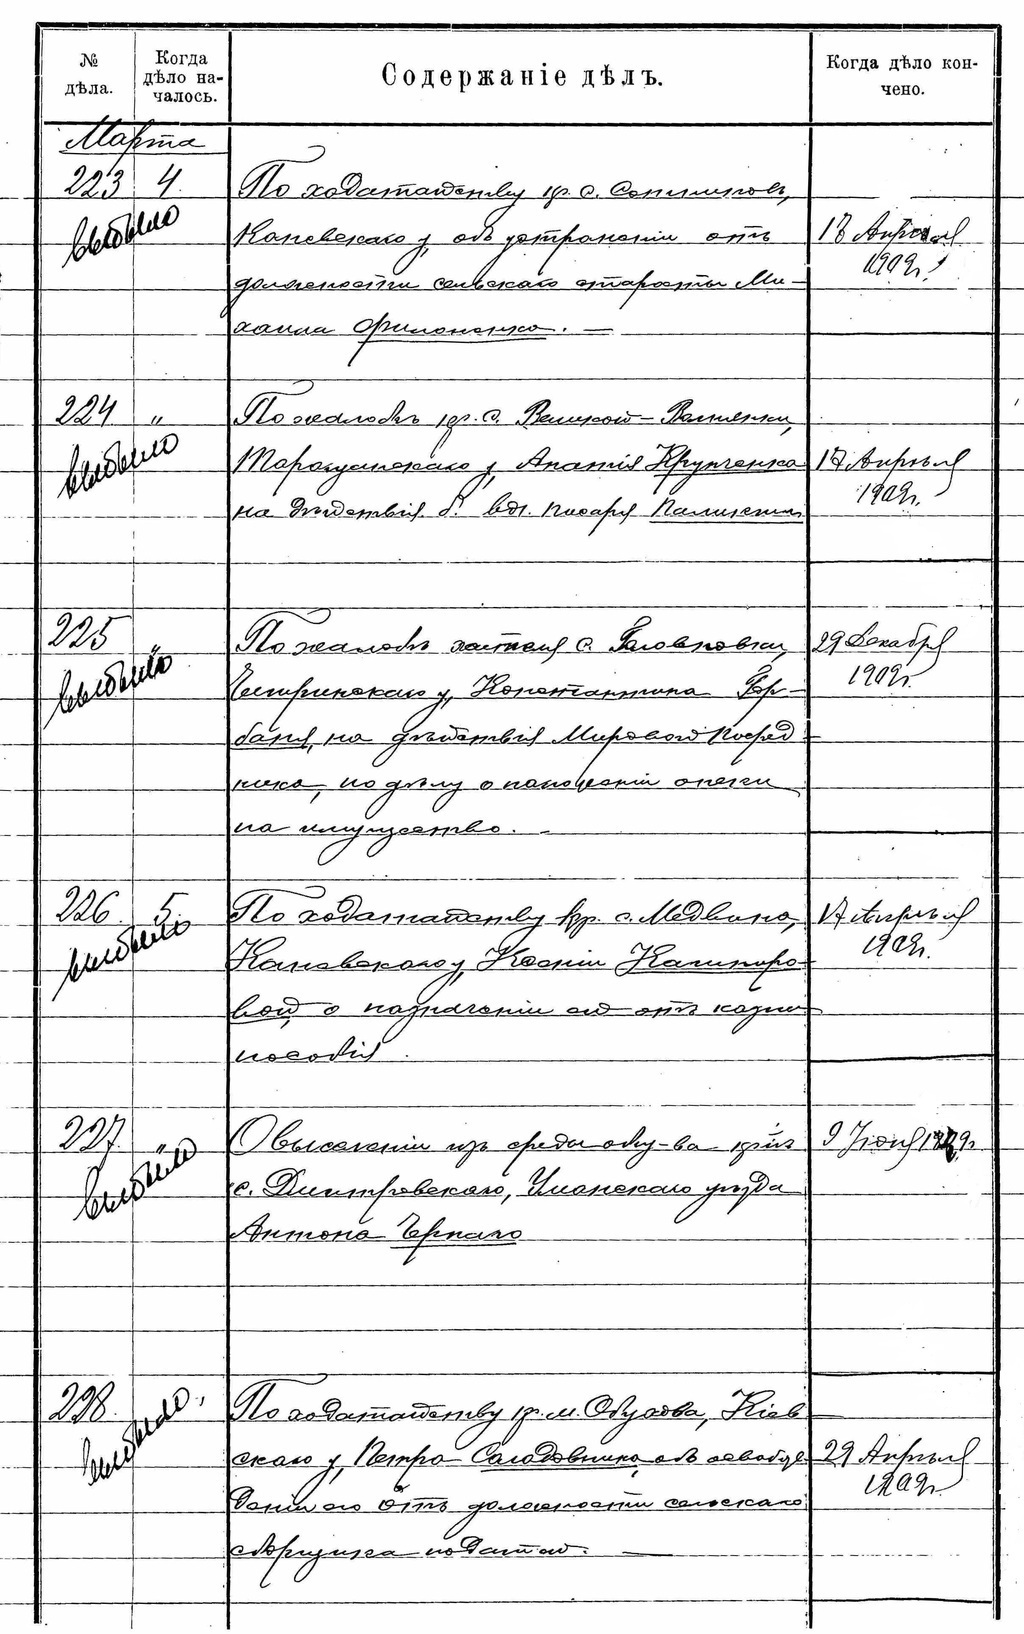 № дѣла.
Когда дѣло началось.
Содержаніе дѣлъ.
Когда дѣло кончено.
Марта
223 4
выбыло
По ходатайству кр. с.
Каневскаго у, объ устраненіи отъ
должности сельскаго старосты Ми-
хаила Филоненко. —
18 Апрѣля
1909г.
224 „
выбыло
По жалобѣ кр. с. Великой-
Таращанскаго у, Анатія Крупченка
на дѣйствія б. вол. писаря
17 Апрѣля
1909г.
225 „
выбыло
По жалобѣ жителя с. Головковки,
Чигиринскаго у, Константина Гор-
баня, на дѣйствія Мирового Посред-
ника, по дѣлу о наложеніи опеки
на имущество. —
29 Декабря
1909г.
226. 5.
выбыло
По ходатайству кр. с. Медвина,
Каневскаго у, Ксеніи Касьянро-
вой, о назначеніи ей отъ казны
пособія.
17 Апрѣля
1909г.
227. „
выбыло
О выселеніи изъ среды общ-ва кр-на
с. Дмитровскаго, Уманскаго уѣзда
Антона Чернаго
9 Іюня 1909г
228. „
выбыло
По ходатайству кр. м. Обухова, Кіев
скаго у, Петра Солодовника, объ освобож
деніи его отъ должности сельскаго
сборщика податей. —
29 Апрѣля
1909г.